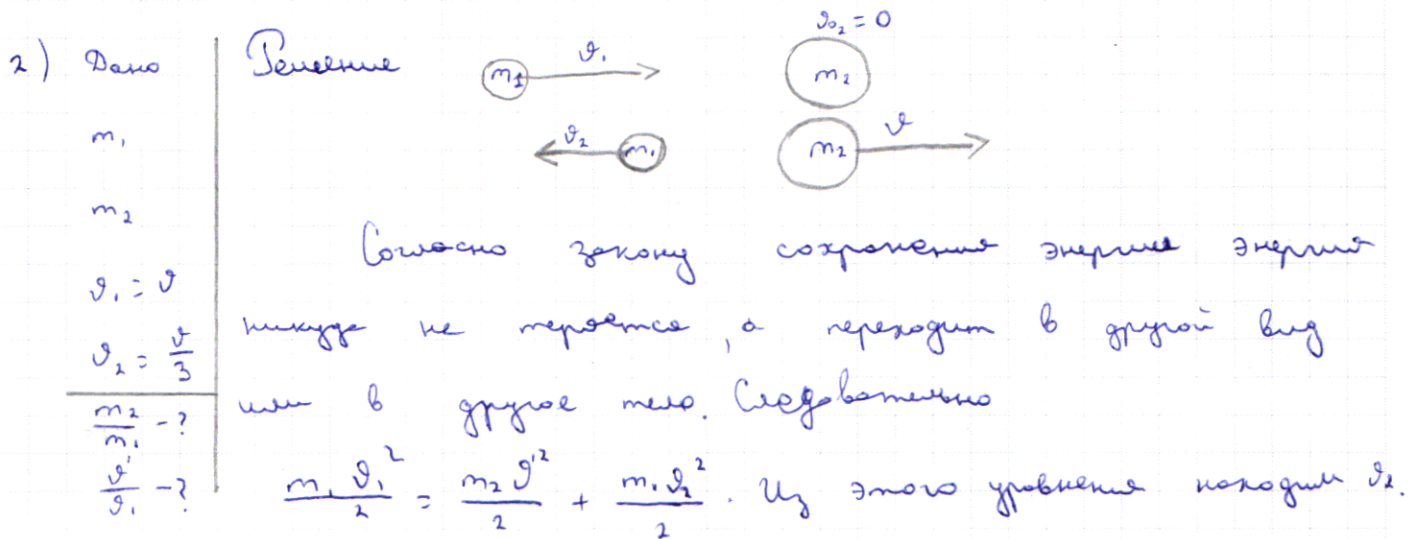 2) Дано Решение m₁ ϑ₁ ϑ₀₂ = 0 m₂
m₁ ϑ₂ m₁ m₂ ϑ
m₂
Согласно закону сохранения энергие энергия
ϑ₁ = ϑ никуда не теряется, а переходит в другой вид
ϑ₂ = ϑ/3 или в другое тело. Следовательно
m₂/m₁ - ?
ϑ'/ϑ₁ - ? m₁ϑ₁²/2 = m₂ϑ'²/2 + m₁ϑ₂²/2. Из этого уровнения находим ϑ₂.